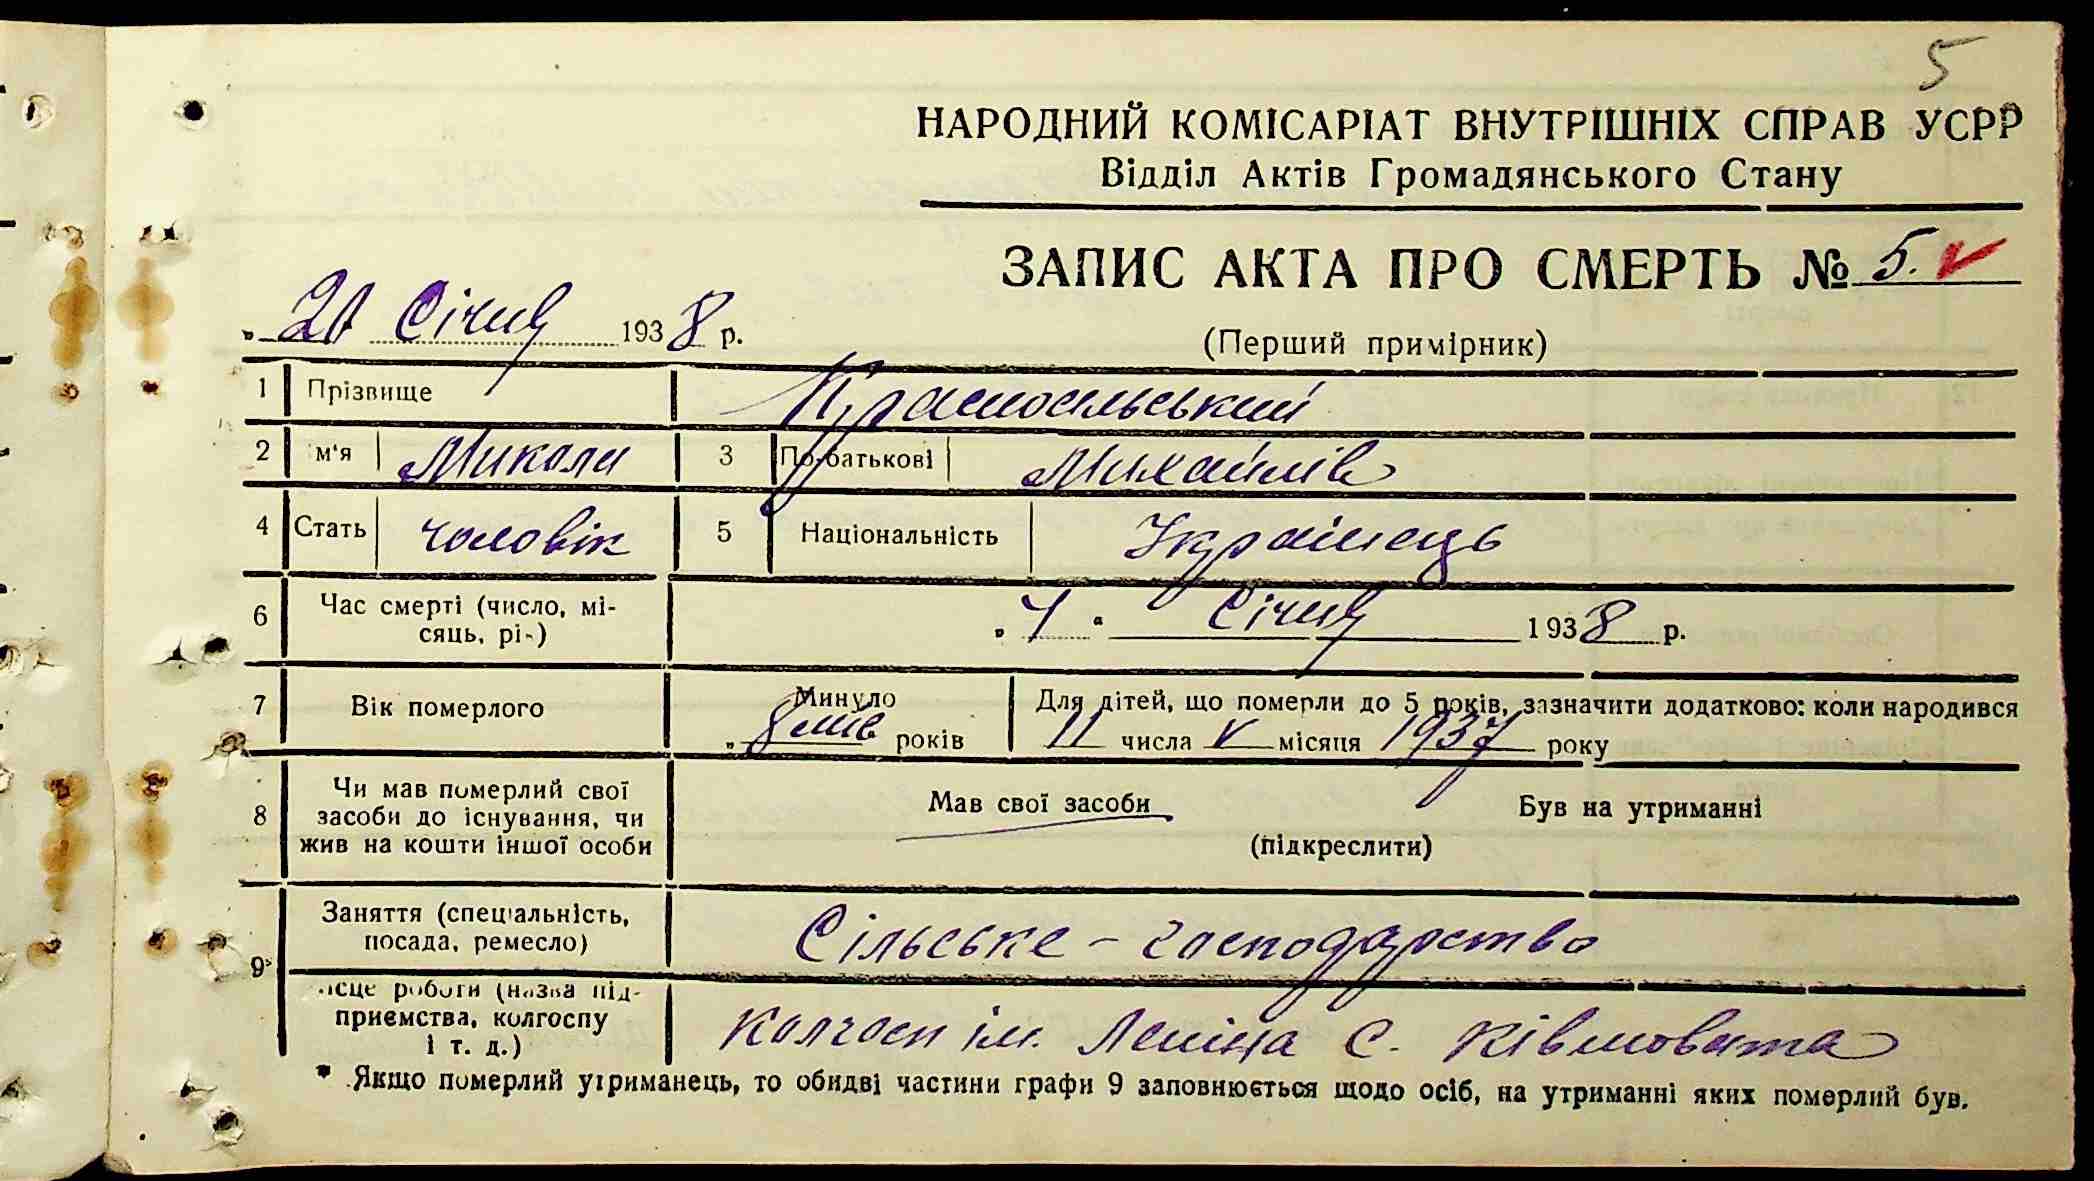 5
НАРОДНИЙ КОМІСАРІАТ ВНУТРІШНІХ СПРАВ УСРР
Відділ Актів Громадянського Стану
ЗАПИС АКТА ПРО СМЕРТЬ № 5.
„ 20 Січня 1938 р.
(Перший примірник)
1 Прізвище Красносільський
2 м'я Микола 3 По-батькові Михайлів
4 Стать чоловік 5 Національність Українець
6 Час смерті (число, мі-
сяць, рі-) „ 7 “ Січня 1938 р.
7 Вік померлого Минуло „ 8 міс років Для дітей, що померли до 5 років, зазначити додатково: коли народився
11 числа V місяця 1937 року
8 Чи мав померлий свої
засоби до існування, чи
жив на кошти іншої особи
Мав свої засоби Був на утриманні
(підкреслити)
9* Заняття (спеціальність,
посада, ремесло) Сільське - господарство
ісце роботи (назва під-
приємства, колгоспу
і т. д.) Колгосп ім. Леніна с.
* Якщо померлий утриманець, то обидві частини графи 9 заповнюється щодо осіб, на утриманні яких померлий був.